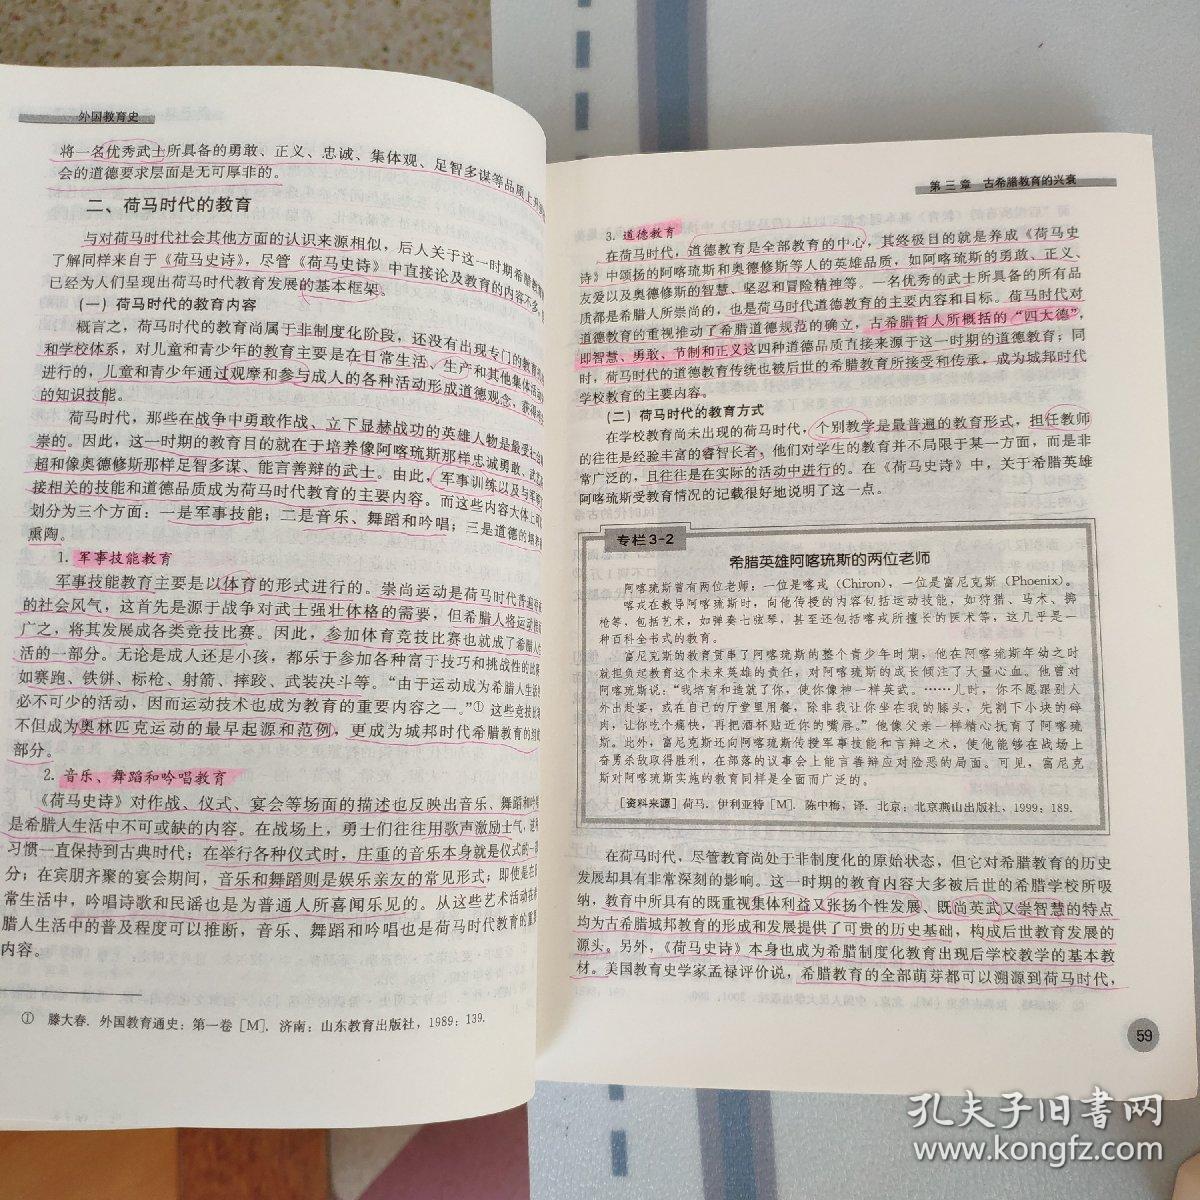 外国教育史
将一名优秀武士所具备的勇敢、正义、忠诚、集体观、足智多谋等品质上升到
会的道德要求层面是无可厚非的。
二、荷马时代的教育
与对荷马时代社会其他方面的认识来源相似，后人关于这一时期希腊教育
了解同样来自于《荷马史诗》，尽管《荷马史诗》中直接论及教育的内容不多，
已经为人们呈现出荷马时代教育发展的基本框架。
（一）荷马时代的教育内容
概言之，荷马时代的教育尚属于非制度化阶段，还没有出现专门的教育
和学校体系，对儿童和青少年的教育主要是在日常生活、生产和其他集体活动
进行的，儿童和青少年通过观摩和参与成人的各种活动形成道德观念，获得
的知识技能。
荷马时代，那些在战争中勇敢作战、立下显赫战功的英雄人物是最受
崇的。因此，这一时期的教育目的就在于培养像阿喀琉斯那样忠诚勇敢、武艺
超和像奥德修斯那样足智多谋、能言善辩的武士。由此，军事训练以及与军事
接相关的技能和道德品质成为荷马时代教育的主要内容。而这些内容大体上可
划分为三个方面：一是军事技能；二是音乐、舞蹈和吟唱；三是道德的培养
熏陶。
1. 军事技能教育
军事技能教育主要是以体育的形式进行的。崇尚运动是荷马时代普遍
的社会风气，这首先是源于战争对武士强壮体格的需要，但希腊人将运动
广之，将其发展成各类竞技比赛。因此，参加体育竞技比赛也就成了希腊人
活的一部分。无论是成人还是小孩，都乐于参加各种富于技巧和挑战性的比
如赛跑、铁饼、标枪、射箭、摔跤、武装决斗等。“由于运动成为希腊人生活
必不可少的活动，因而运动技术也成为教育的重要内容之一。”① 这些竞技
不但成为奥林匹克运动的最早起源和范例，更成为城邦时代希腊教育的
部分。
2. 音乐、舞蹈和吟唱教育
《荷马史诗》对作战、仪式、宴会等场面的描述也反映出音乐、舞蹈和吟
是希腊人生活中不可或缺的内容。在战场上，勇士们往往用歌声激励士气，
习惯一直保持到古典时代；在举行各种仪式时，庄重的音乐本身就是仪式的一
分；在宾朋齐聚的宴会期间，音乐和舞蹈则是娱乐亲友的常见形式；即使是在
常生活中，吟唱诗歌和民谣也是为普通人所喜闻乐见的。从这些艺术活动在
腊人生活中的普及程度可以推断，音乐、舞蹈和吟唱也是荷马时代教育的重要
内容。
① 滕大春. 外国教育通史：第一卷 [M]. 济南：山东教育出版社，1989：139.
第三章 古希腊教育的兴衰
3. 道德教育
在荷马时代，道德教育是全部教育的中心，其终极目的就是养成《荷马史
诗》中颂扬的阿喀琉斯和奥德修斯等人的英雄品质，如阿喀琉斯的勇敢、正义、
友爱以及奥德修斯的智慧、坚忍和冒险精神等。一名优秀的武士所具备的所有品
质都是希腊人所崇尚的，也是荷马时代道德教育的主要内容和目标。荷马时代对
道德教育的重视推动了希腊道德规范的确立，古希腊哲人所概括的“四大德”，
即智慧、勇敢、节制和正义这四种道德品质直接来源于这一时期的道德教育；同
时，荷马时代的道德教育传统也被后世的希腊教育所接受和传承，成为城邦时代
学校教育的主要内容。
（二）荷马时代的教育方式
在学校教育尚未出现的荷马时代，个别教学是最普遍的教育形式，担任教师
的往往是经验丰富的睿智长者，他们对学生的教育并不局限于某一方面，而是非
常广泛的，且往往是在实际的活动中进行的。在《荷马史诗》中，关于希腊英雄
阿喀琉斯受教育情况的记载很好地说明了这一点。
专栏 3-2
希腊英雄阿喀琉斯的两位老师
阿喀琉斯曾有两位老师，一位是喀戎（Chiron），一位是富尼克斯（Phoenix）。
喀戎在教导阿喀琉斯时，向他传授的内容包括运动技能，如狩猎、马术、掷
枪等，包括艺术，如弹奏七弦琴，甚至还包括喀戎所擅长的医术等，这几乎是一
种百科全书式的教育。
富尼克斯的教育贯串了阿喀琉斯的整个青少年时期，他在阿喀琉斯年幼之时
就担负起教育这个未来英雄的责任，对阿喀琉斯的成长倾注了大量心血。他曾对
阿喀琉斯说：“我培育和造就了你，使你像神一样英武。……儿时，你不愿跟别人
外出赴宴，或在自己的厅堂里用餐，除非我让你坐在我的膝头，先割下小块的碎
肉，让你吃个痛快，再把酒杯贴近你的嘴唇。”他像父亲一样精心抚育了阿喀琉
斯。此外，富尼克斯还向阿喀琉斯传授军事技能和言辩之术，使他能够在战场上
奋勇杀敌取得胜利，在部落的议事会上能言善辩应对险恶的局面。可见，富尼克
斯对阿喀琉斯实施的教育同样是全面而广泛的。
[资料来源] 荷马. 伊利亚特 [M]. 陈中梅，译. 北京：北京燕山出版社，1999：189.
在荷马时代，尽管教育尚处于非制度化的原始状态，但它对希腊教育的历史
发展却具有非常深刻的影响。这一时期的教育内容大多被后世的希腊学校所吸
纳，教育中所具有的既重视集体利益又张扬个性发展、既尚英武又崇智慧的特点
均为古希腊城邦教育的形成和发展提供了可贵的历史基础，构成后世教育发展的
源头。另外，《荷马史诗》本身也成为希腊制度化教育出现后学校教学的基本教
材。美国教育史学家孟禄评价说，希腊教育的全部萌芽都可以溯源到荷马时代，
59
孔夫子旧书网
www.kongfz.com